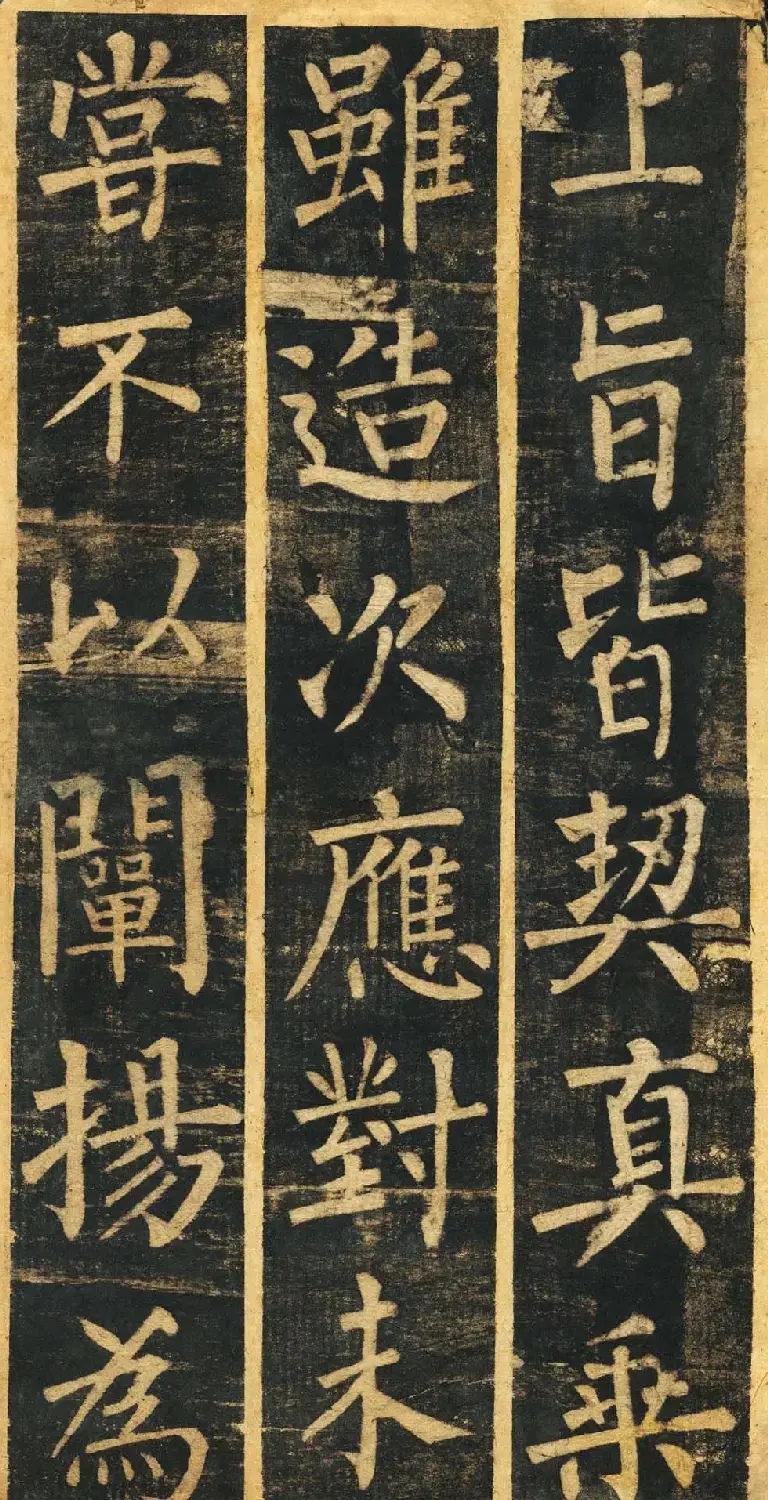 上旨皆契真乗
雖造次應對未
嘗不以闡揚為